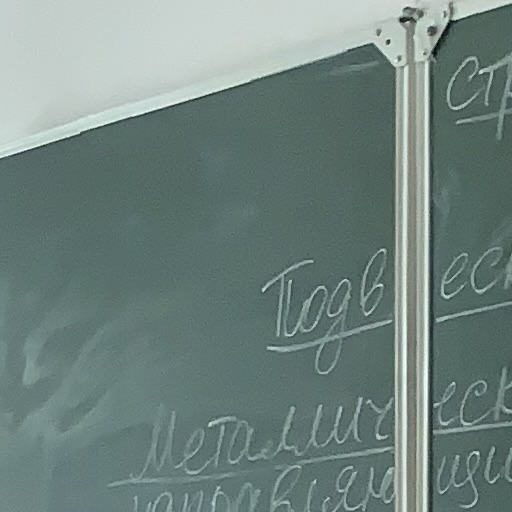 Стр
Подвеск
Металлическ
направляющи